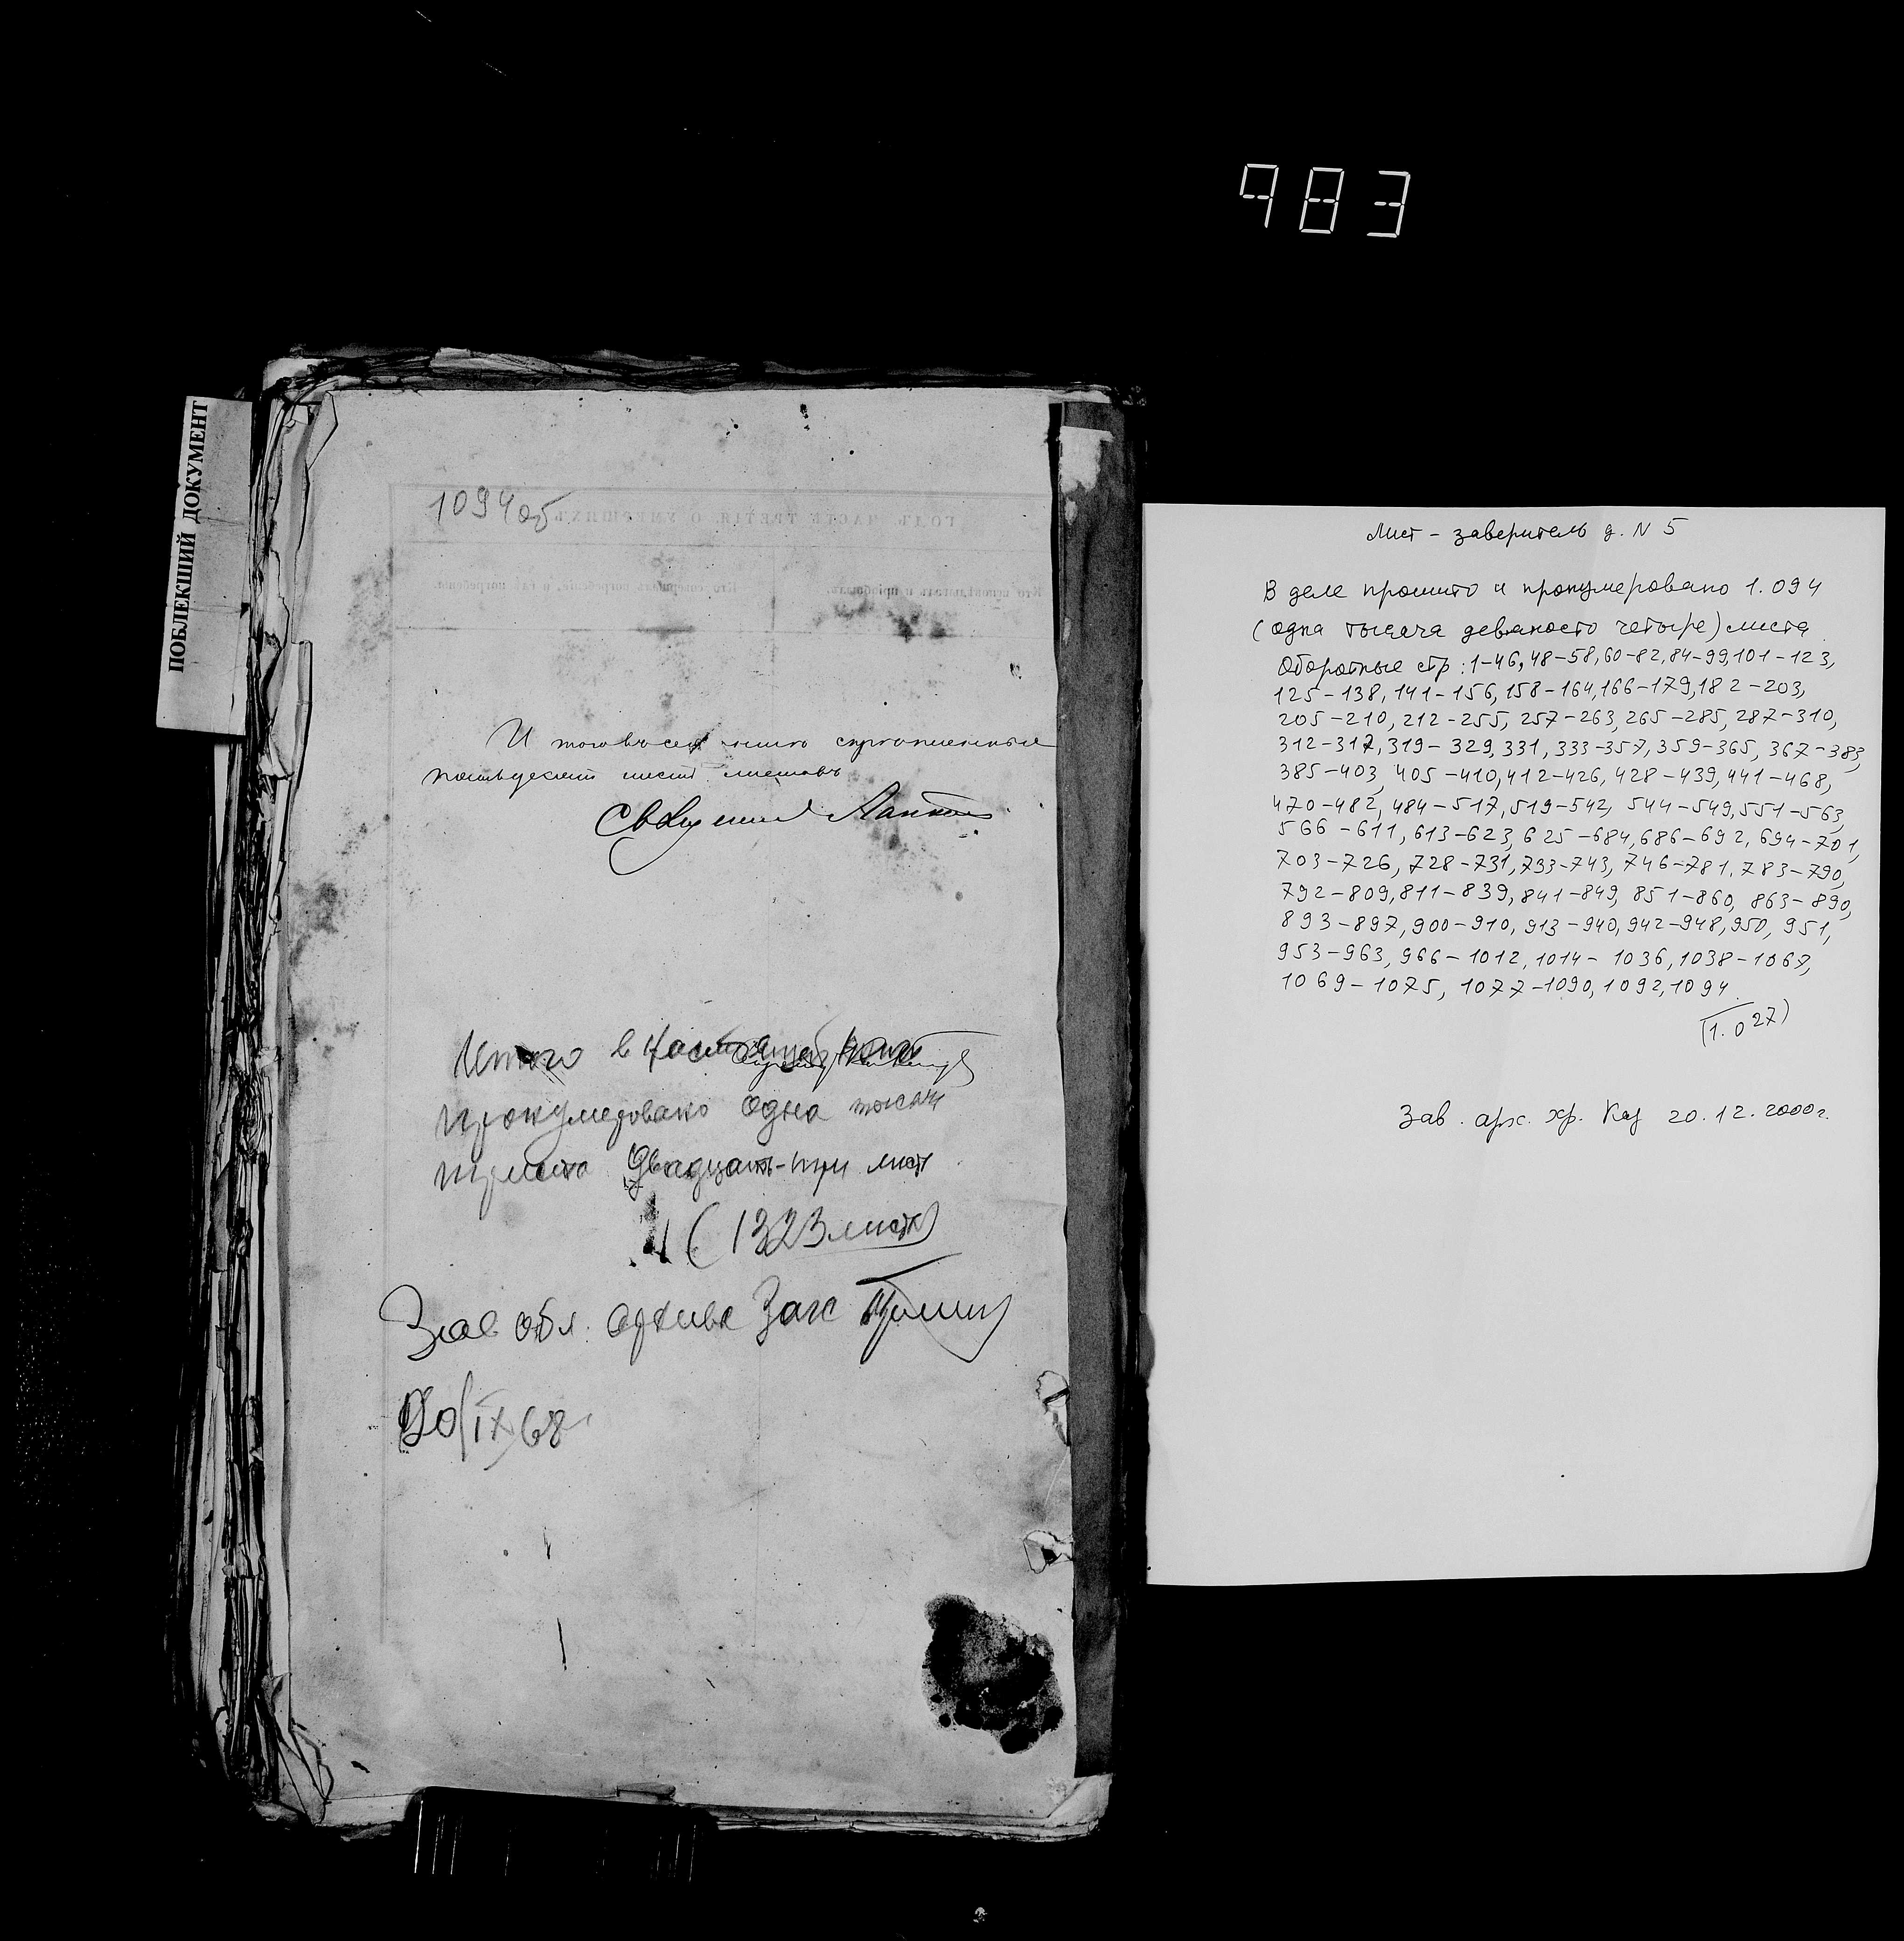 983
ПОБЛЕКШИЙ ДОКУМЕНТ
1094об
ГОДЪ ЧАСТЬ ТРЕТІЯ, О УМЕРШИХЪ
Кто исповѣдывалъ и пріобщалъ.
Кто совершалъ погребеніе, и гдѣ погребены.
И того въ сей
листовъ
Священник
Итого в настоящей книге
пронумеровано одна тысяча
триста двадцать-три лист
(1323 листа)
Зав обл. архива Загс
20/IX 68
Лист - заверитель д. N 5
В деле прошито и пронумеровано 1.094
(одна тысяча девяносто четыре) листа
Оборотные стр: 1-46, 48-58, 60-82, 84-99, 101-123,
125-138, 141-156, 158-164, 166-179, 182-203,
205-210, 212-255, 257-263, 265-285, 287-310,
312-317, 319-329, 331, 333-357, 359-365, 367-383,
385-403, 405-410, 412-426, 428-439, 441-468,
470-482, 484-517, 519-542, 544-549, 551-563,
566-611, 613-623, 625-684, 686-692, 694-701,
703-726, 728-731, 733-743, 746-781, 783-790,
792-809, 811-839, 841-849, 851-860, 863-890,
893-897, 900-910, 913-940, 942-948, 950, 951,
953-963, 966-1012, 1014-1036, 1038-1067,
1069-1075, 1077-1090, 1092, 1094
(1.027)
Зав. арх. хр. 20.12.2000г.